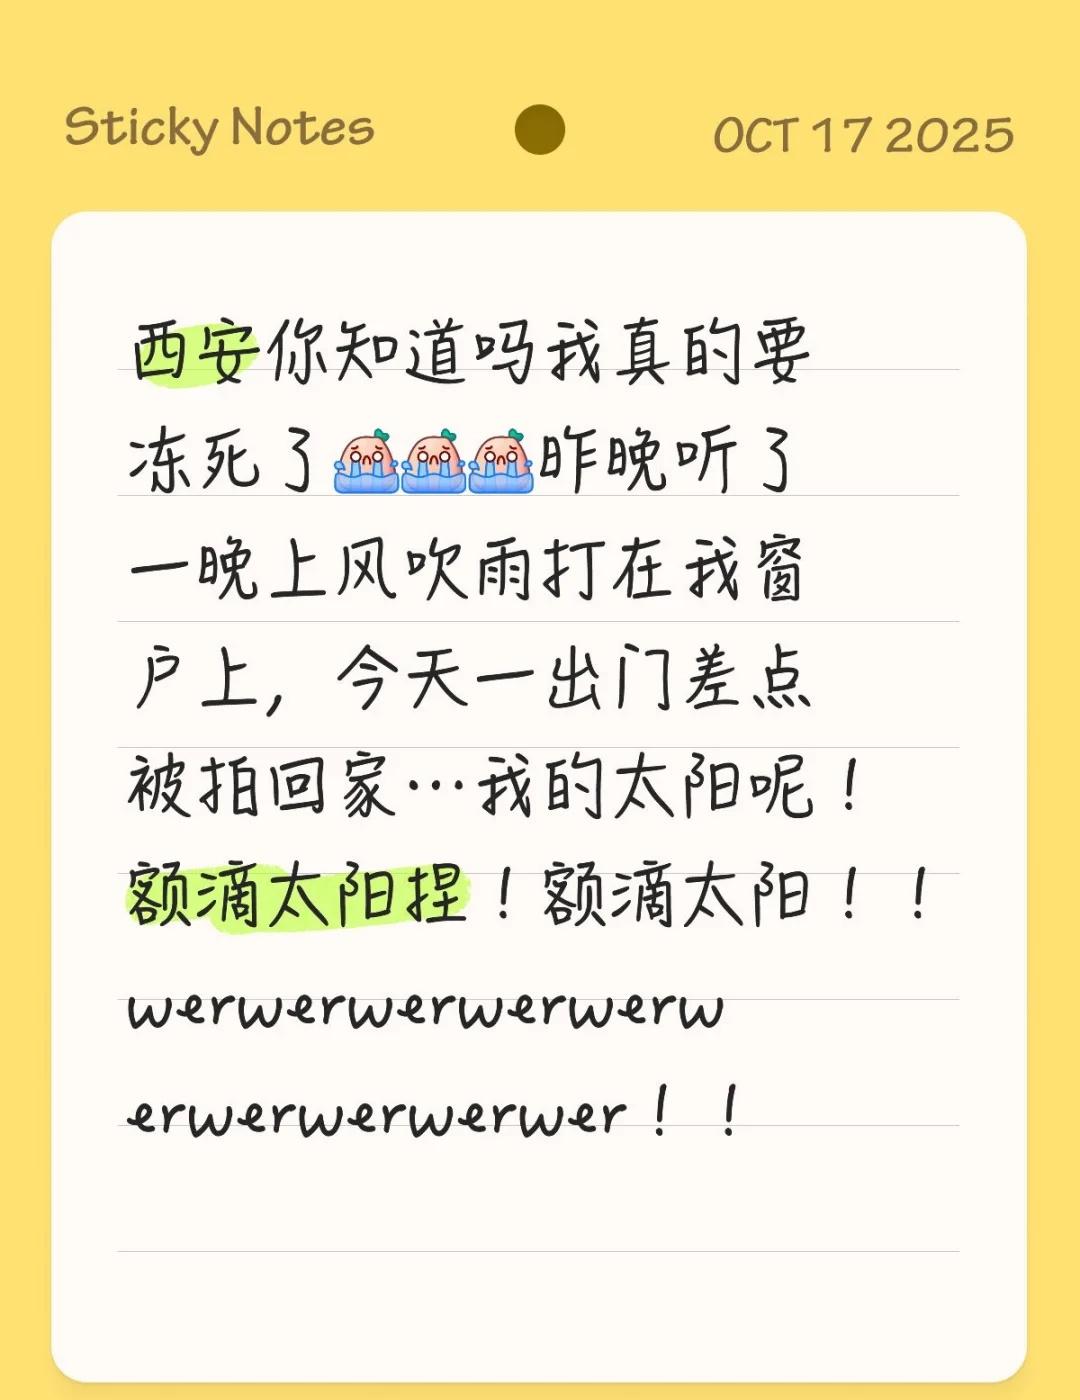 Sticky Notes
OCT 17 2025
西安你知道吗我真的要
冻死了昨晚听了
一晚上风吹雨打在我窗
户上，今天一出门差点
被拍回家…我的太阳呢！
额滴太阳捏！额滴太阳！！
werwerwerwerwerw
erwerwerwerwer！！